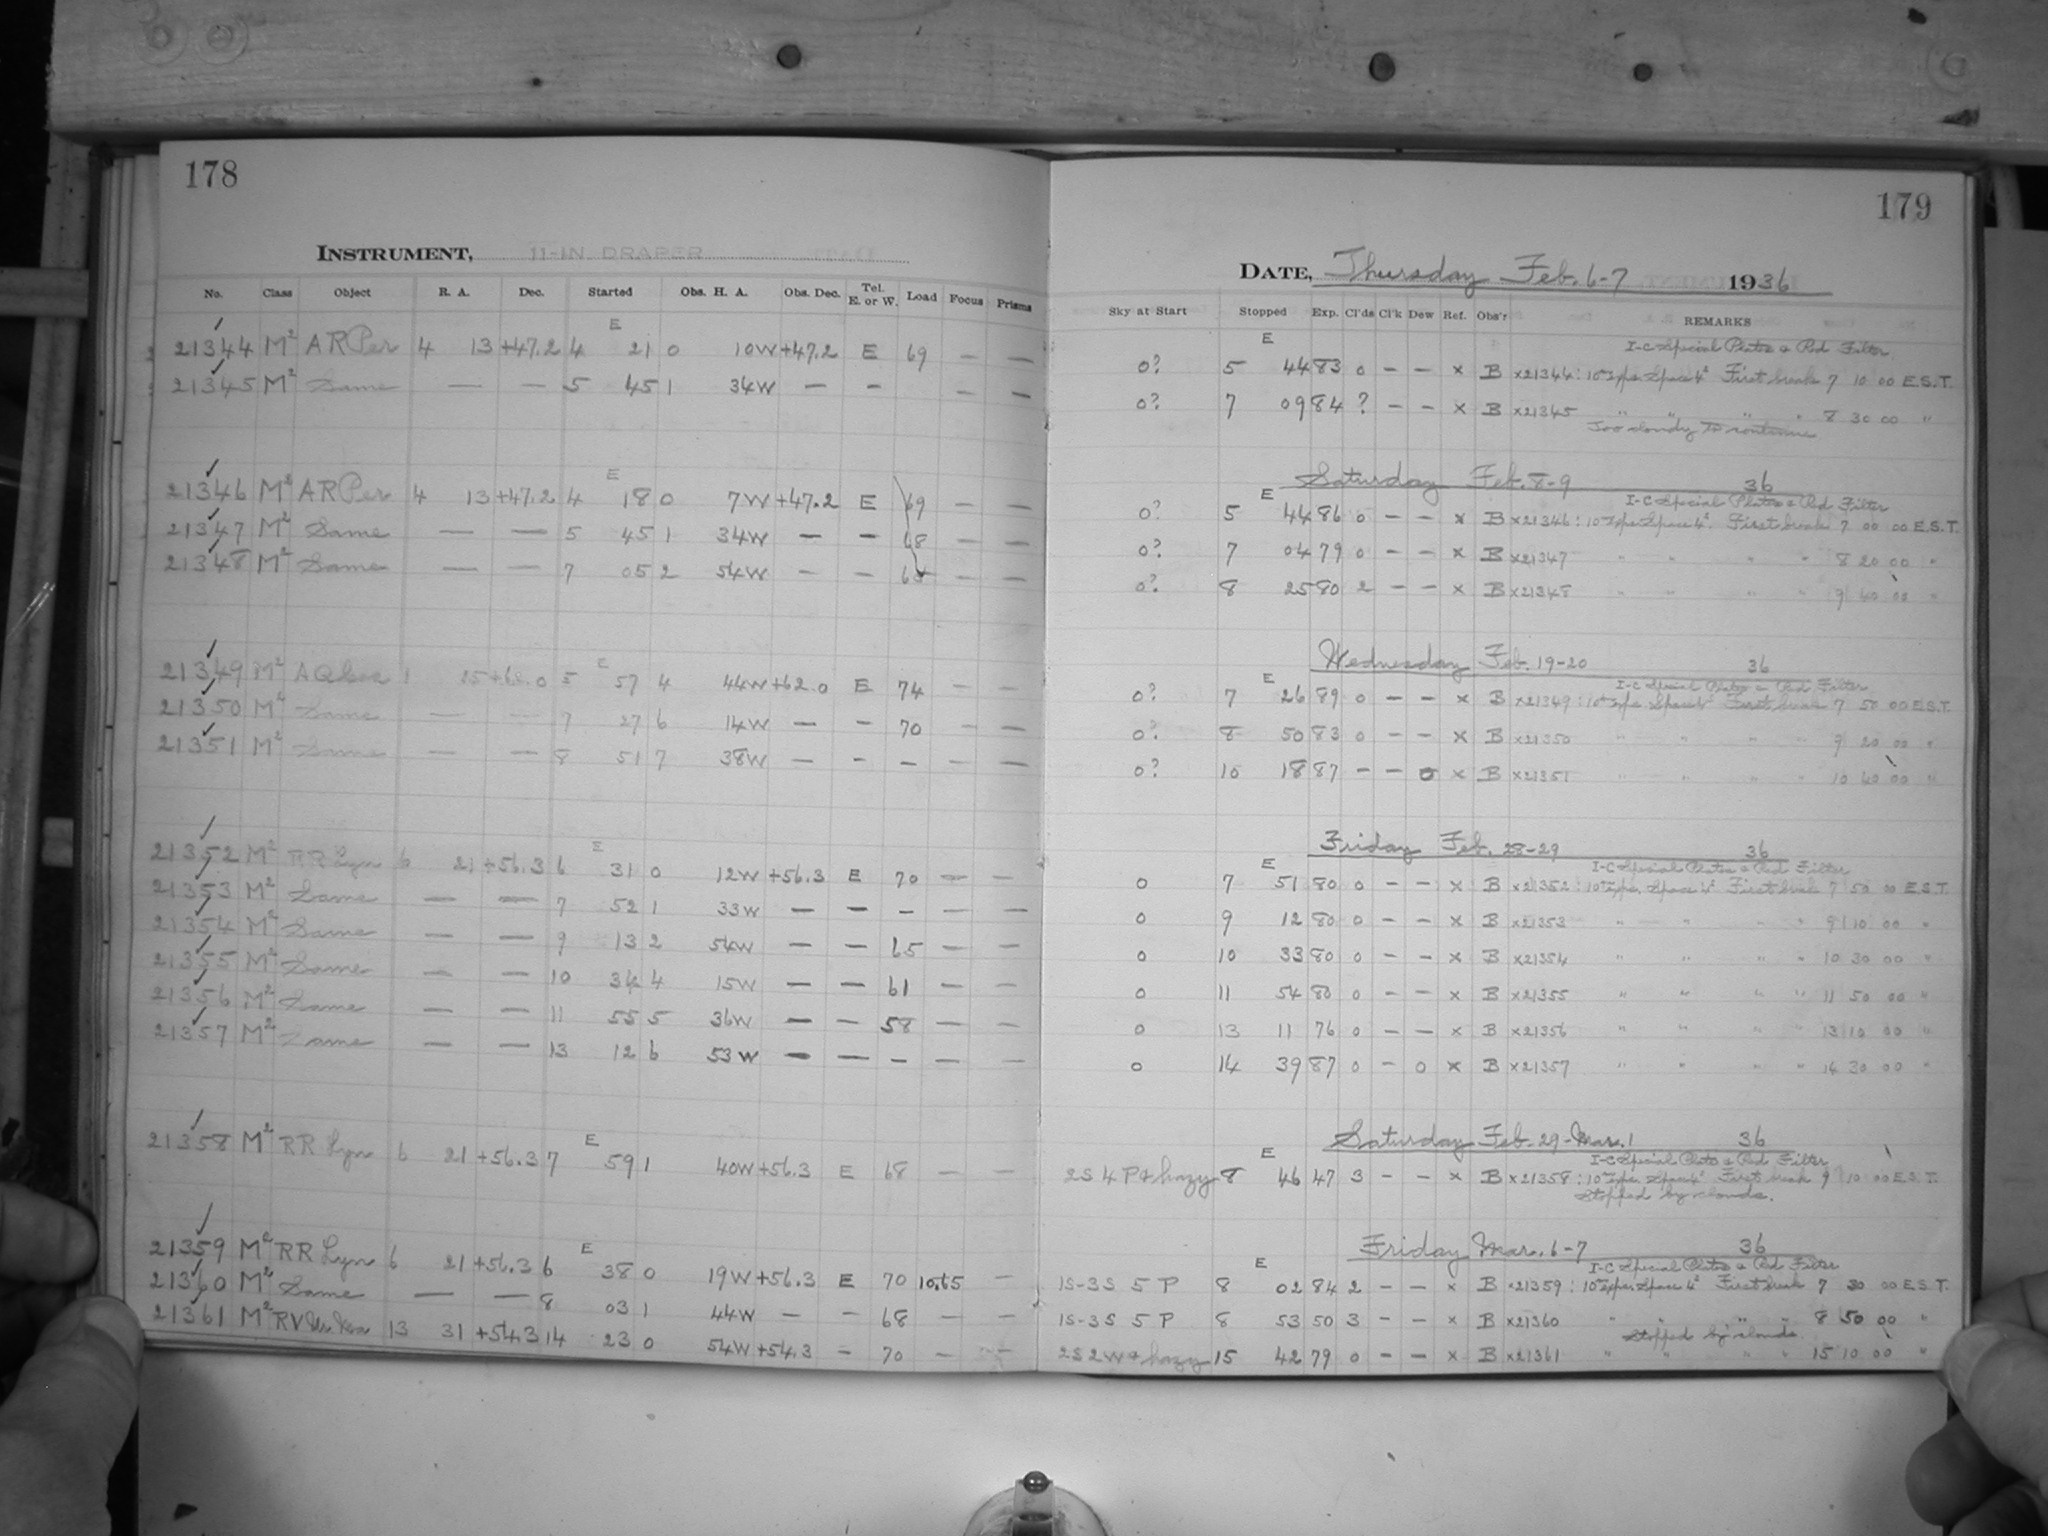 178
INSTRUMENT, 11-IN. DRAPER
No. Class Object R. A. Dec. Started Obs. H. A. Obs. Dec. Tel. E. or W. Load Focus Prisms
E
21344 M² AR Per 4 13 +47.2 4 21 0 10W +47.2 E 69 — —
21345 M² Same — — 5 45 1 34W — — — —
E
21346 M² AR Per 4 13 +47.2 4 18 0 7W +47.2 E 69 — —
21347 M² Same — — 5 45 1 34W — — 68 — —
21348 M² Same — — 7 05 2 54W — — — —
E
21349 M² 1 15 +62.0 5 57 4 44W +62.0 E 74 — —
21350 M² Same — — 7 27 6 14W — — 70 — —
21351 M² Same — — 8 51 7 38W — — — — —
E
21352 M² RR Lyn 6 21 +56.3 6 31 0 12W +56.3 E 70 — —
21353 M² Same — — 7 52 1 33W — — — — —
21354 M² Same — — 9 13 2 54W — — 65 — —
21355 M² Same — — 10 34 4 15W — — 61 — —
21356 M² Same — — 11 55 5 36W — — 58 — —
21357 M² Same — — 13 12 6 53W — — — — —
E
21358 M² RR Lyn 6 21 +56.3 7 59 1 40W +56.3 E 68 — —
E
21359 M² RR Lyn 6 21 +56.3 6 38 0 19W +56.3 E 70 10.65 —
21360 M² Same — — 8 03 1 44W — — 68 — —
21361 M² RV 13 31 +54.3 14 23 0 54W +54.3 — 70 — —
179
DATE, Thursday Feb. 6-7 1936
Sky at Start Stopped Exp. Cl'ds Cl'k Dew Ref. Obs'r REMARKS
E I-C Special Plates & Red Filter
0? 5 44 83 0 — — x B x21344: 10 Space 4ˢ First break 7 10 00 E.S.T.
0? 7 09 84 ? — — x B x21345 " " " " 8 30 00 "
Too cloudy to continue
Saturday Feb. 8-9 36
E I-C Special Plates & Red Filter
0? 5 44 86 0 — — x B x21346: 10 Space 4ˢ. First break 7 00 00 E.S.T.
0? 7 04 79 0 — — x B x21347 " " " " 8 20 00 "
0? 8 25 80 2 — — x B x21348 " " " " 9 40 00 "
Wednesday Feb. 19-20 36
E I-C Special Plates & Red Filter
0? 7 26 89 0 — — x B x21349: 10 Space 4ˢ First break 7 50 00 E.S.T.
0? 8 50 83 0 — — x B x21350 " " " " 9 20 00 "
0? 10 18 87 — — 0 x B x21351 " " " " 10 40 00 "
Friday Feb. 28-29 36
E I-C Special Plates & Red Filter
0 7 51 80 0 — — x B x21352: 10 Space 4ˢ First break 7 50 00 E.S.T.
0 9 12 80 0 — — x B x21353 " " " " 9 10 00 "
0 10 33 80 0 — — x B x21354 " " " " 10 30 00 "
0 11 54 80 0 — — x B x21355 " " " " 11 50 00 "
0 13 11 76 0 — — x B x21356 " " " " 13 10 00 "
0 14 39 87 0 — 0 x B x21357 " " " " 14 30 00 "
Saturday Feb. 29-Mar. 1 36
E I-C Special Plates & Red Filter
2S 4 P & hazy 8 46 47 3 — — x B x21358: 10 Space 4ˢ First break 9 10 00 E.S.T.
Stopped by clouds.
Friday Mar. 6-7 36
E I-C Special Plates & Red Filter
1S-3S 5 P 8 02 84 2 — — x B x21359: 10 Space 4ˢ First break 7 30 00 E.S.T.
1S-3S 5 P 8 53 50 3 — — x B x21360 " " " " 8 50 00 "
Stopped by clouds.
2S 2W & hazy 15 42 79 0 — — x B x21361 " " " " 15 10 00 "